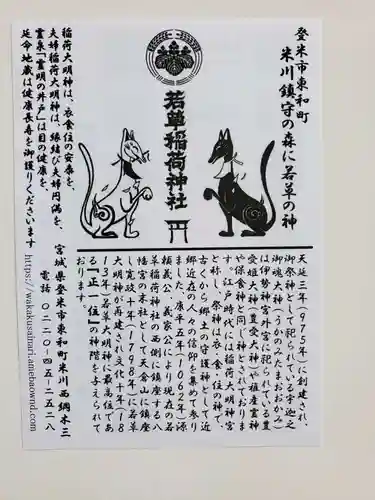 登米市東和町
米川鎮守の森に若草の神
若草稲荷神社
天延三年(975年)に創建され、
御祭神として祀られている宇迦之
御魂大神(うかのみたまおおかみ)
は伊勢神宮外宮に祀られている豊
受姫大神(豊受大神)や稙産霊神
や保食神と同じ神とされておりま
す。江戸時代には稲荷大明神宮
と称し、祭神は衣・食・住の神で、
古くから郷土の守護神として近
郷近在の人々の信仰を集めて参り
ました。康平五年(1062年)源
頼義公、義家公により現在の若
草稲荷神社の西側に鎮座する八
幡宮の末社として天倉山に鎮座
し寛政十年(1798年)に若草
大明神が再建され文化十年(18
13年)若草大明神に最高位であ
る『正一位』の神階を与えられて
おります。
稲荷大明神は、衣食住の安泰を、
夫婦稲荷大明神は、縁結び夫婦円満を、
霊泉「霊明の井戸」は目の健康を、
延命地蔵は健康長寿を御護りくださいます
宮城県登米市東和町米川西綱木三
電話 〇二二〇-四五-二五二八
https://wakakusainari.amebaownd.com